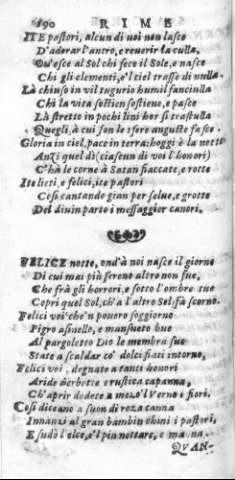 190 RIME
ITE pastori, alcun di voi non lasce
D'adorar l'antro, e reuerir la culla,
Qu'esce al Sol chi fece il Sole, e nasce
Chi gli elementi, e'l ciel trasse di nulla.
Là chiuso in vil tugurio humil fanciulla
Chi la vita sostien sostiene, e pasce
Là stretto in pochi lini hor si trastulla
Quegli, à cui son le sfere anguste fasce.
Gloria in ciel, pace in terra: hoggi è la notte
Anzi quel dì (ciascun di voi l'honori)
C'hà le corne à Satan fiaccate, e rotte
Ite lieti, e felici, ite pastori
Così cantando gian per selue, e grotte
Del diuin parto i messaggier canori.
FELICE notte, ond'à noi nasce il giorno
Di cui mai più sereno altro non fue,
Che frà gli horrori, e sotto l'ombre tue
Copri quel Sol, ch'a l'altro Sol fà scorno.
Felici voi che'n pouero soggiorno
Pigro asinello, e mansueto bue
Al pargoletto Dio le membra sue
State a scaldar co' dolci fiati intorno,
Felici voi, degnate a tanti honori
Aride herbette e rustica capanna,
Ch'aprir vedete a mezo'l Verno i fiori.
Così diceano a suon di roza canna
Innanzi al gran bambin chini i pastori,
E sudò l'elce, e'l pin nettare, e manna.
QVAN-